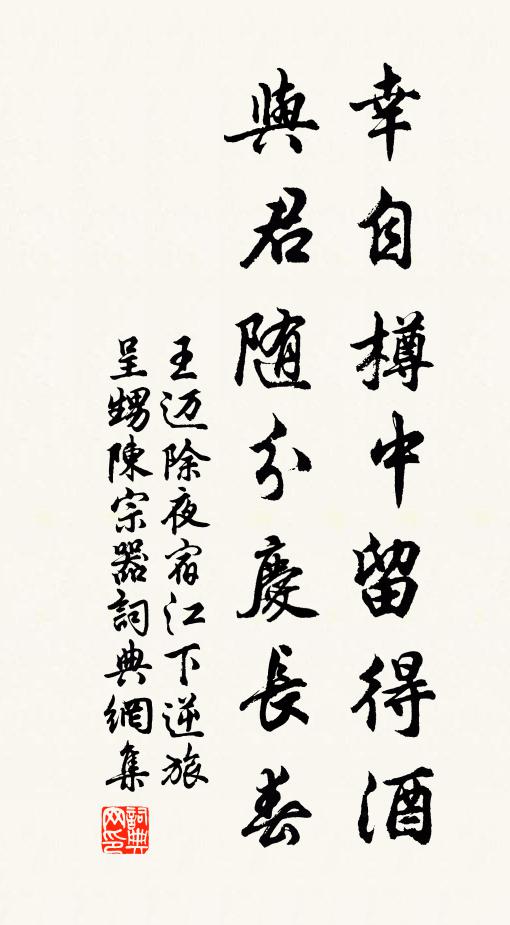 幸自樽中留得酒
與君随分慶長春
王迈除夜宿江下逆旅
呈甥陳宗器詞典網集
詞典
网印